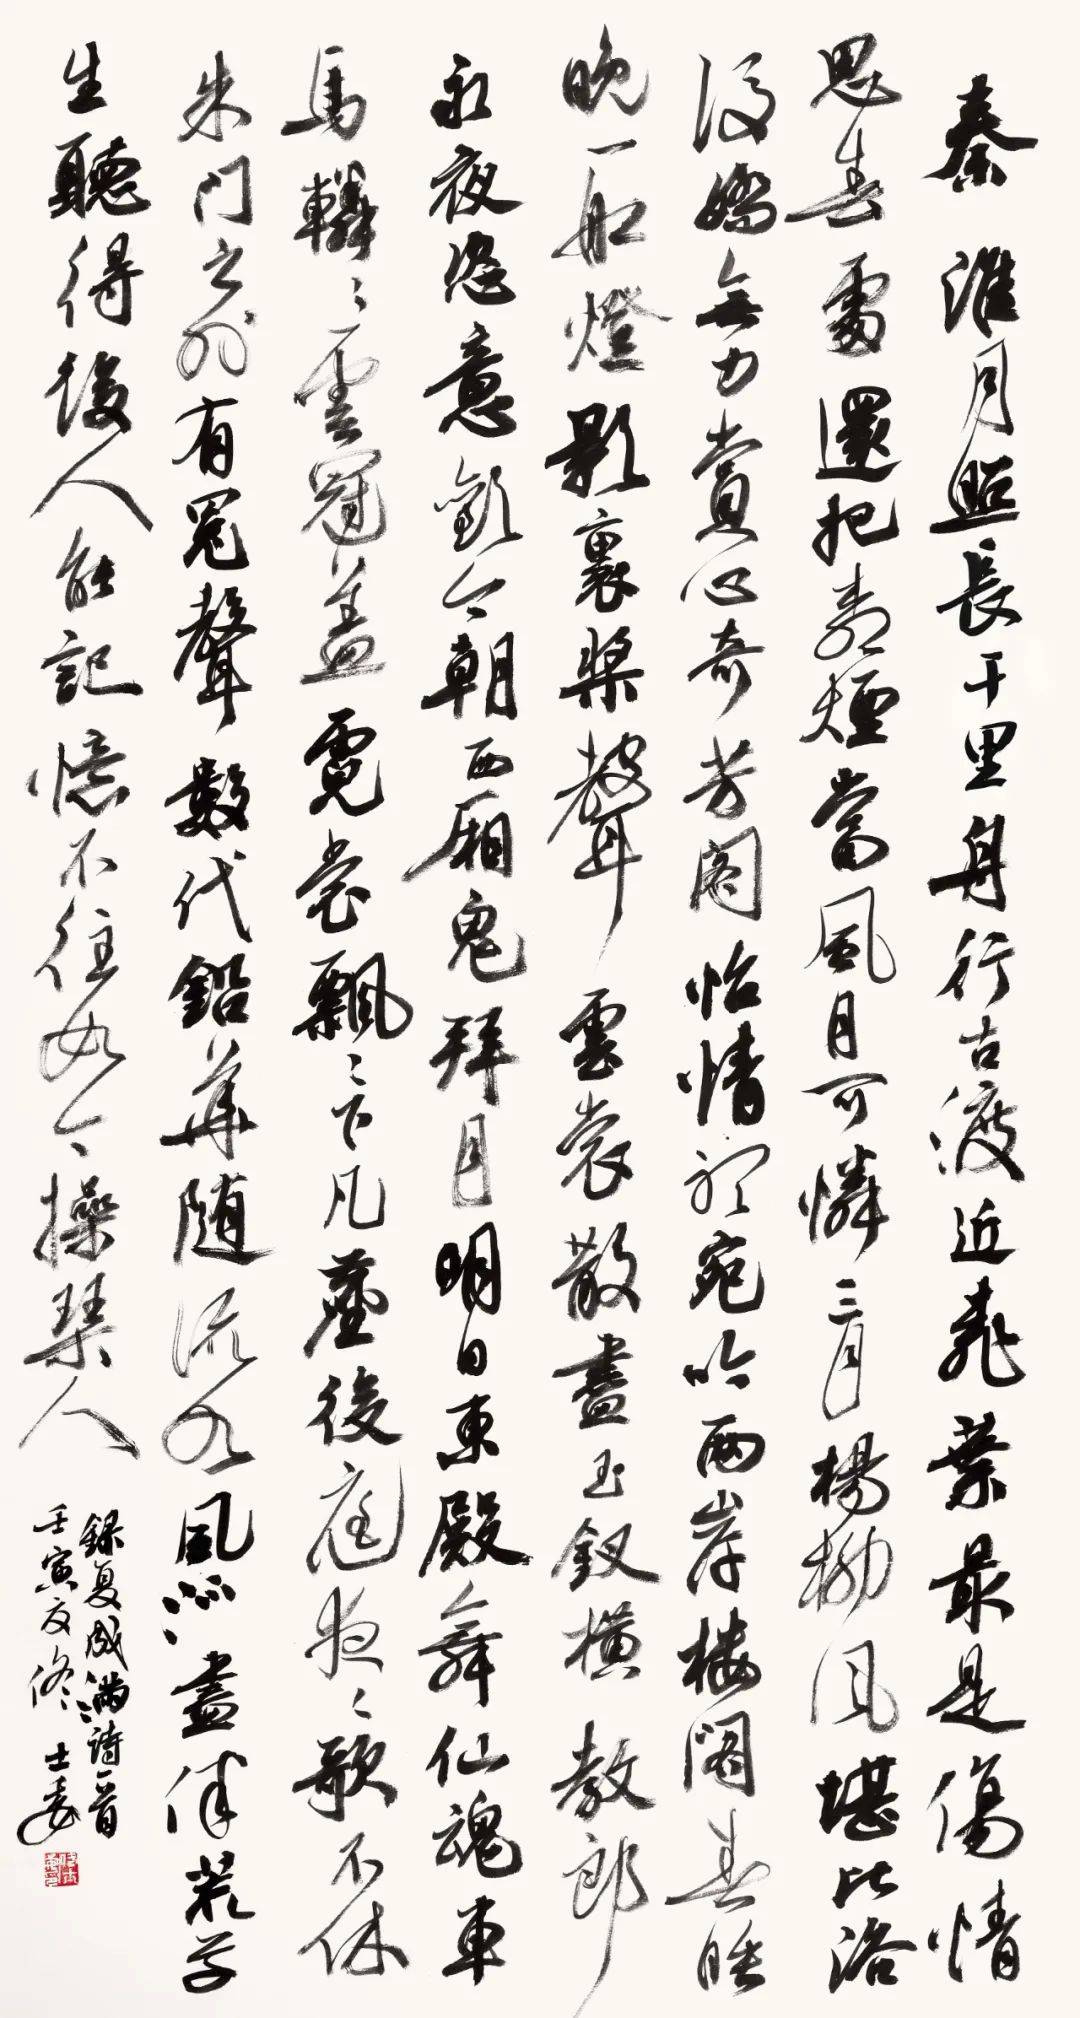 秦淮月照長干里舟行古渡近桃葉最是傷情
思春處還把青煙當風月可憐三月楊柳風堪比洛
浸嬌無力賞心奇芳閣怡情聽宛吟兩岸樓閣春睡
晚一船燈影裏槳聲雲裳散盡玉釵橫教郎
永夜恣意歡今朝西厢鬼拜月明日東殿舞仙魂車
馬轔々雲冠蓋霓裳飄々下凡塵後庭夜々歌不休
朱门之外有冤聲數代鉛華随流水風流盡伴荒草
生聽得後人能記憶不住如今操琴人
錄夏成滿詩一首
壬寅